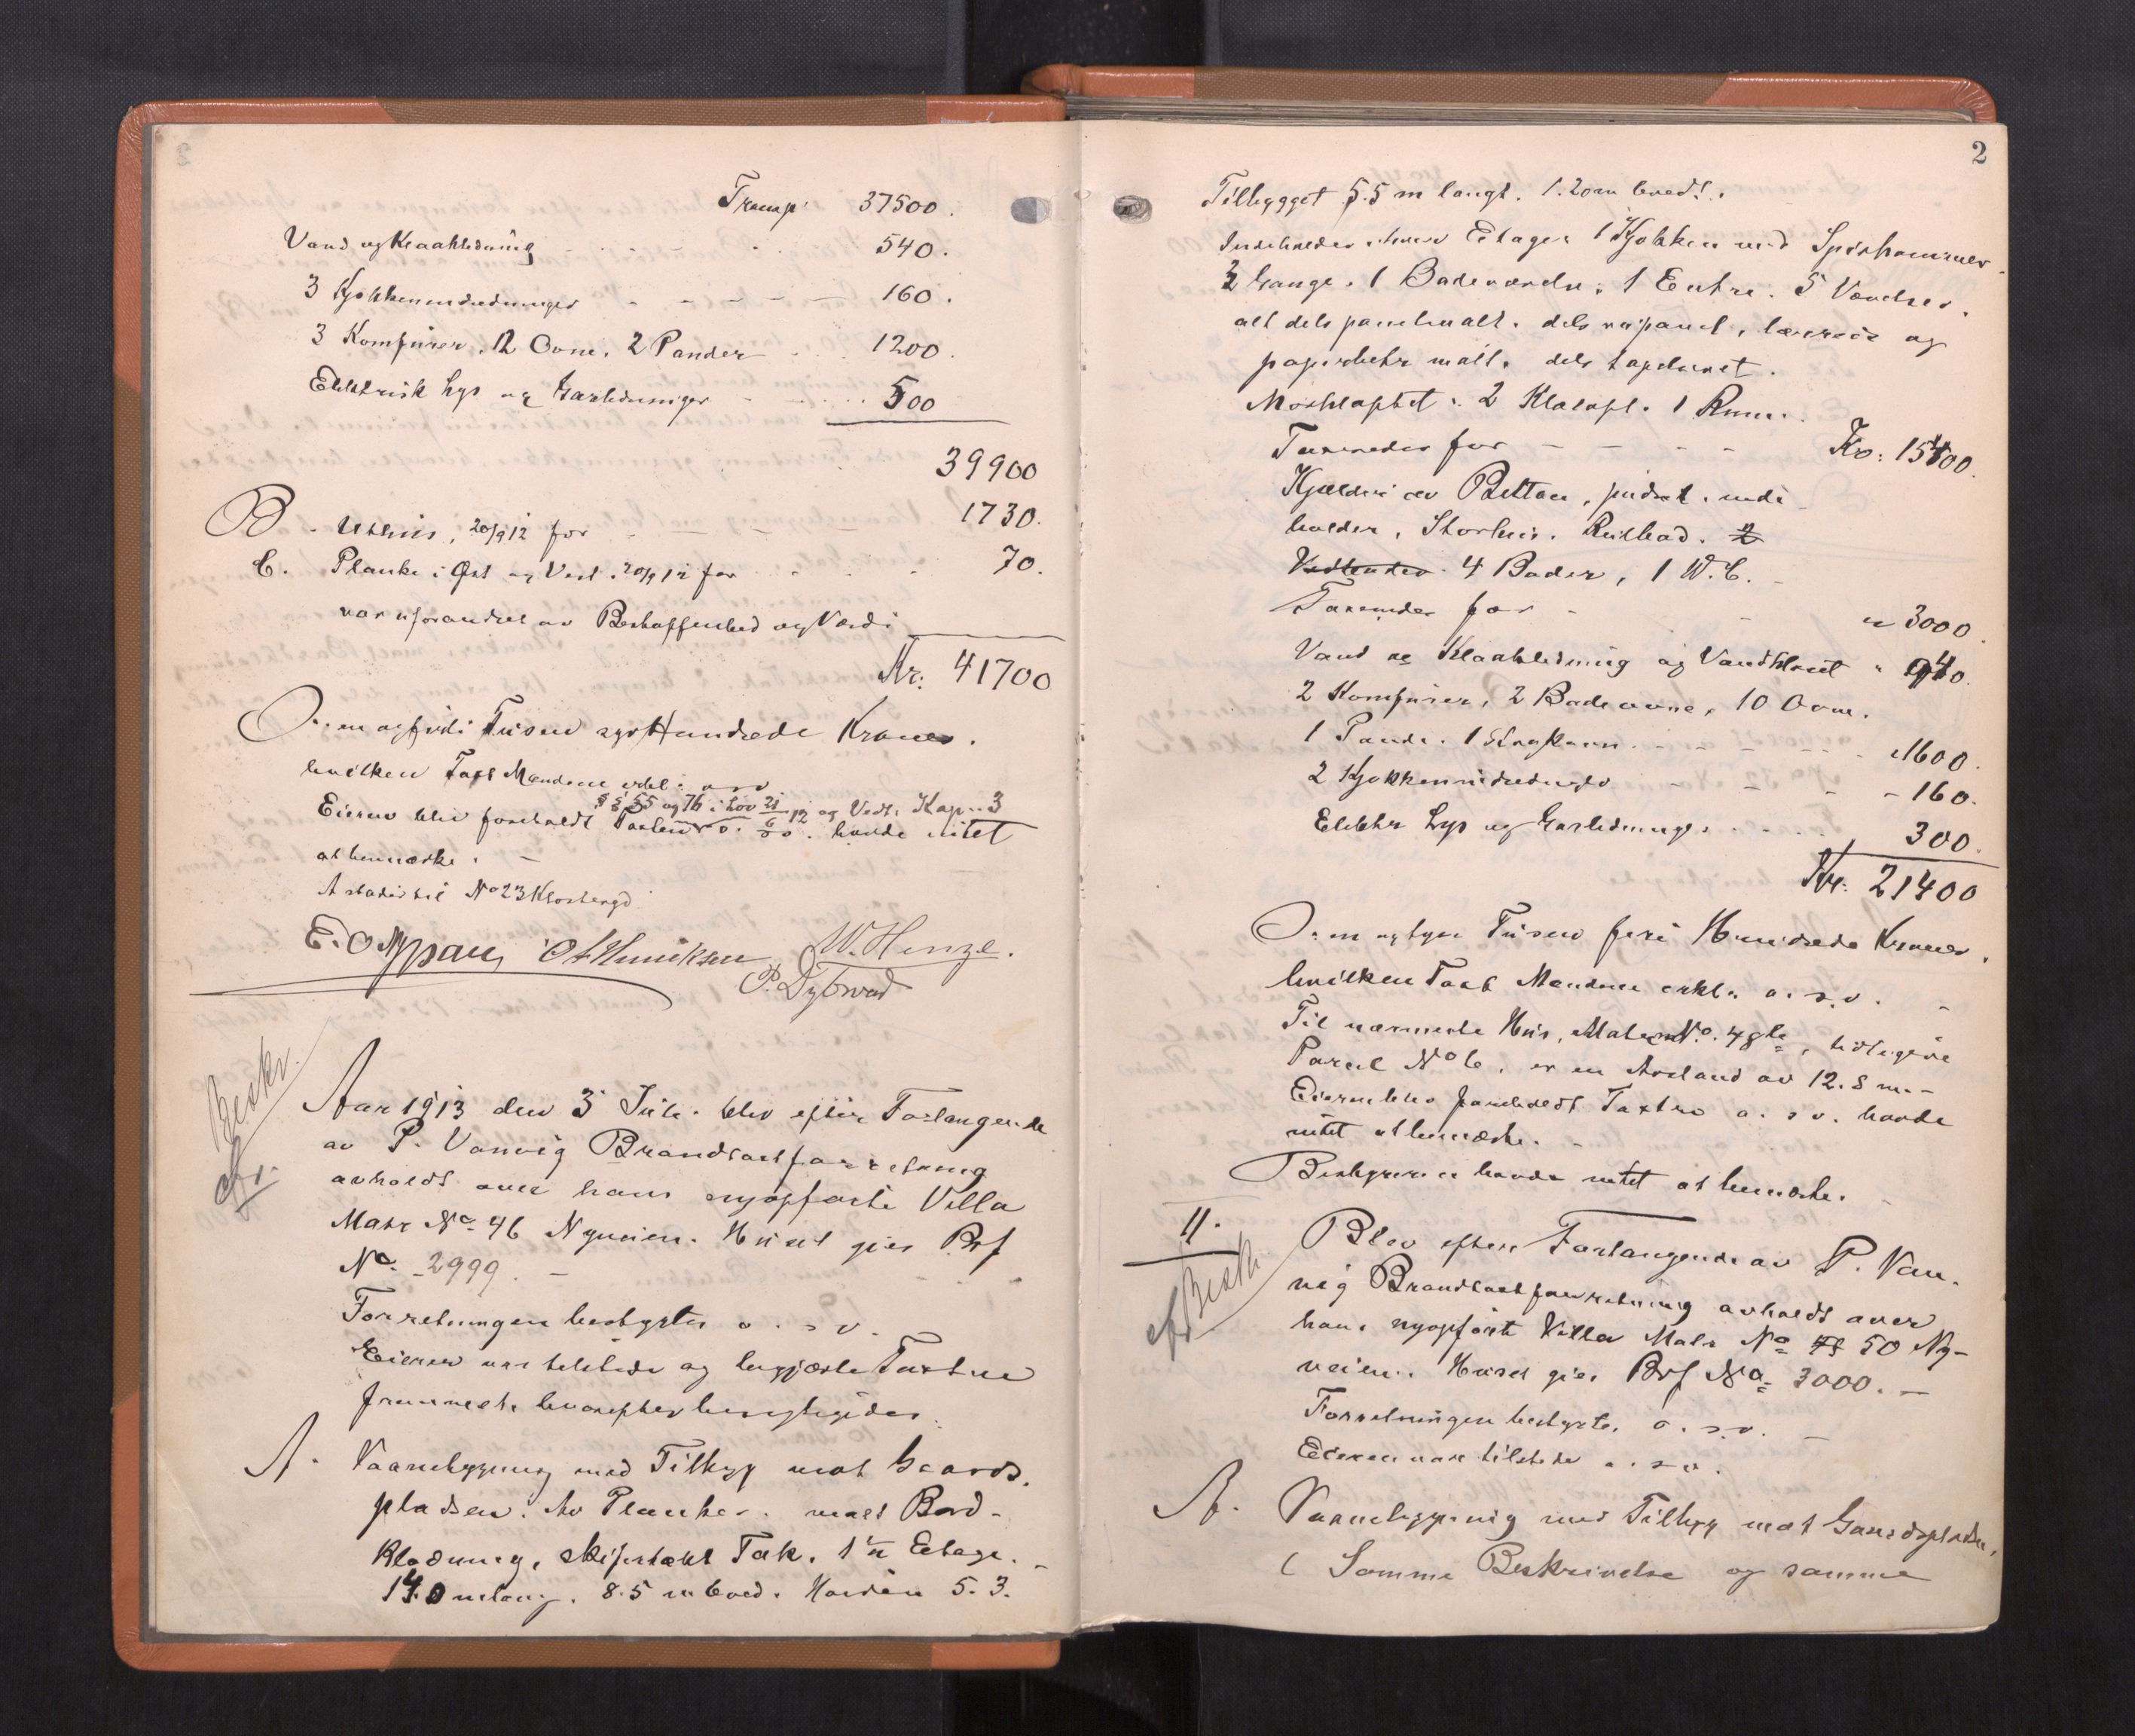 Transp. 37500.
Vand og Kloakledning - - - 540.
3 Kjøkkenindredninger - - - - 160.
3 Komfurer, 12 Ovne, 2 Pander - - 1200.
Elektrisk Lys og Gasledninger - - - 500
39900
B. Uthus, 20/9 12 for - - - 1730.
C. Planke i Øst og Vest. 20/9 12 for - - - 70.
var uforandret av Beskaffenhed og Værdi
Kr: 41700
En og førti Tusen syv Hundrede Kroner.
hvilken Taxt Mændene erkl: osv
§ § 55 og 76 i Lov 21/6 12 og Vedt: Kap. 3
Eieren blev foreholdt Taxten o. s. v. havde intet
at bemærke. -
Avstand til No 23 Klostergd
E. O Nypan, O A Henriksen W. Hinze.
P. Dybwad
Beskr.
Aar 1913 den 3 Juli. blev efter Forlangende
av P. Vanvig Brandtaxtforretning
avholdt over hans nyopførte Villa
Matr No 46 Nyveien. Huset gies Brf
No 2999. -
Forretningen bestyrtes o. s. v.
Eieren var tilstede og begjærte Taxten
fremmet, hvorefter besigtigedes
A. Vaanebygning med Tilbyg mot Gaards-
pladsen. Av Planker. malt Bord-
klædning, skifertækt Tak. 1½ Etage. -
14.0 m lang. 8.5 m bred. Høiden 5.3.
2
Tilbygget 5.5 m langt. 1.20 m bredt.
Indeholder i hver Etage: 1 Kjøkken med Spiskammer.
2 Gange. 1 Badeværelse. 1 Entre. 5 Værelser.
alt dels panelmalt. dels panel, lærreds og
papirbetr malt. dels tapetseret.
Mørkloftet: 2 Klæsapl. 1 Rum.
Taxeredes for - - - - Kr: 15400.
Kjælder av Betton, pudset. inde-
holder, Storhus. Rulbod. 2
Vedboder 4 Boder, 1 W.C. -
Taxeredes for - - " 3000.
Vand og Kloakledning og Vandklosset " 940.
2 Komfurer, 2 Badeovne, 10 Ovne.
1 Pande. 1 - - - - " 1600.
2 Kjøkkenindredninger - - - - 160.
Elektr Lys og Gasledninger - - - 300.
Kr: 21400
En og tyve Tusen fire Hundrede Kroner.
hvilken Taxt Mændene erkl: o. s. v. -
Til nærmeste Hus, Matr No. 48, tidligere
Parcel No 6, er en Avstand av 12.8 m. -
Eieren blev foreholdt Taxten o. s. v. havde
intet at bemærke. -
Bestyreren havde intet at bemærke. -
11.
Beskr.
Blev efter Forlangende av P. Van-
vig Brandtaxtforretning avholdt over
hans nyopførte Villa Matr No 48 50 Ny-
veien. Huset gies Brf No 3000. -
Forretningen bestyrtes o. s. v. -
Eieren var tilstede o. s. v.
A. Vaanebygning med Tilbyg mot Gaardspladsen,
( Samme Beskrivelse og samme